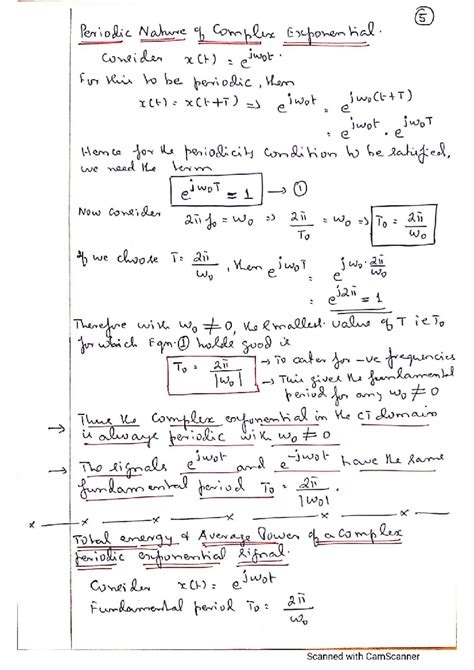 5
Periodic Nature of Complex Exponential.
Consider x(t) = e^{jω0t}
For this to be periodic, then
x(t) = x(t+T) => e^{jω0t} = e^{jω0(t+T)}
= e^{jω0t} . e^{jω0T}
Hence for the periodicity condition to be satisfied,
we need the term
e^{jω0T} = 1 → ①
Now consider 2π f0 = ω0 => 2π/T0 = ω0 => T0 = 2π/ω0
If we choose T = 2π/ω0, then e^{jω0T} = e^{jω0·2π/ω0}
= e^{j2π} = 1
Therefore with ω0 ≠ 0, the smallest value of T ie T0
for which Eqn. ① holds good is
T0 = 2π/|ω0| → To cater for -ve frequencies
→ This gives the fundamental
period for any ω0 ≠ 0
→ Thus the complex exponential in the CT domain
is always periodic with ω0 ≠ 0
→ The signals e^{jω0t} and e^{-jω0t} have the same
fundamental period T0 = 2π/|ω0|.
x x x x x x x
Total energy & Average Power of a complex
periodic exponential signal.
Consider x(t) = e^{jω0t}
Fundamental period T0 = 2π/ω0
Scanned with CamScanner